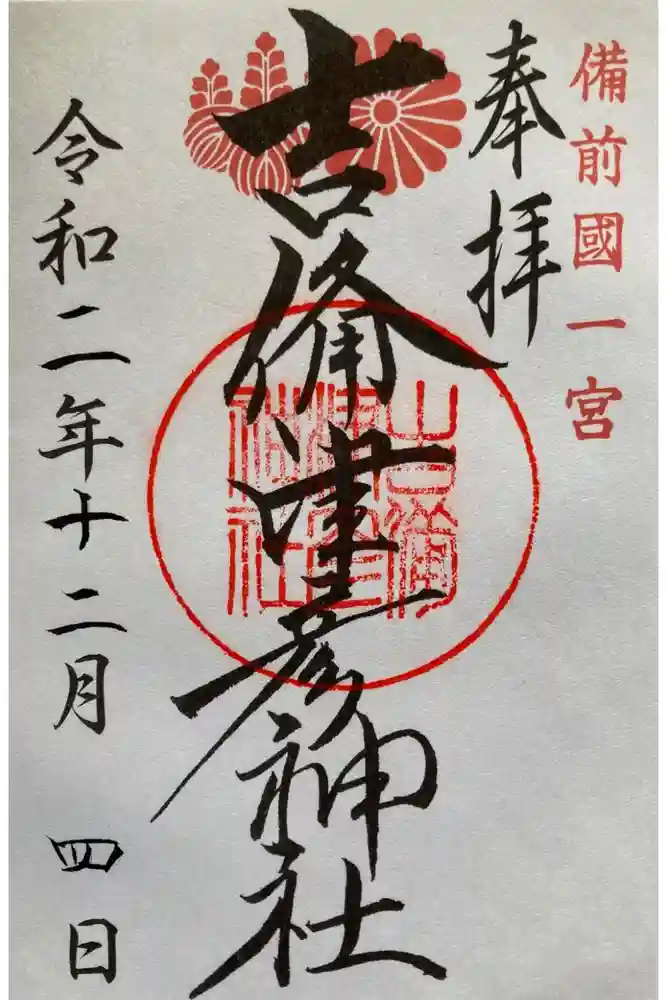 備前國一宮
奉拝
吉備津彦神社
吉備
津彦
神社
令和二年十二月 四日